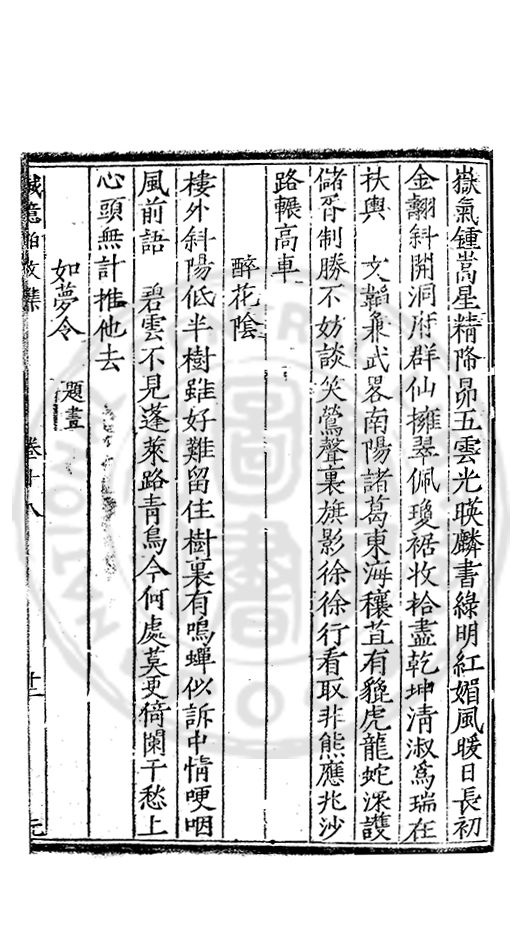 嶽氣鍾嵩星精降昴五雲光暎麟書綠明紅媚風暖日長初
金翿斜開洞府群仙擁翠佩瓊裾收拾盡乾坤清淑爲瑞在
扶輿　文韜兼武畧南陽諸葛東海穰苴有貔虎龍蛇深謢
儲胥制勝不妨談笑鶯聲裏旗影徐徐行看取非熊應兆沙
路輾高車
醉花陰
樓外斜陽低半樹雖好難留住樹裏有鳴蟬似訴中情哽咽
風前語　碧雲不見蓬萊路青鳥今何處莫更倚闌干愁上
心頭無計推他去
如夢令　題畫
誠意伯文集　卷十八　十二　元